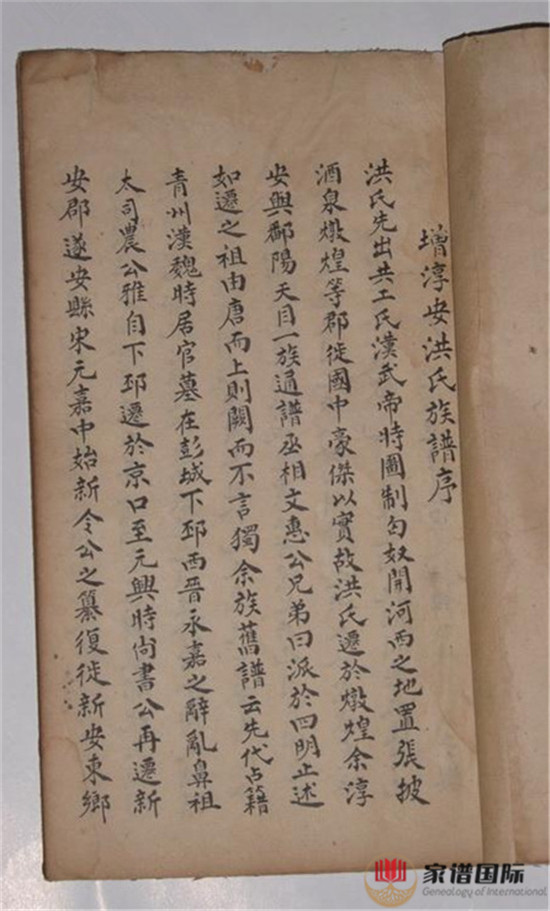 增淳安洪氏族譜序
洪氏先出共工氏漢武帝時圖制匈奴開河西之地置張掖
酒泉燉煌等郡徙國中豪傑以實故洪氏遷於燉煌余淳
安與鄱陽天目一族通譜丞相文惠公兄弟曰派於四明止述
如遷之祖由唐而上則闕而不言獨余族舊譜云先代占籍
青州漢魏時居官墓在彭城下邳西晉永嘉之辭亂鼻祖
太司農公雅自下邳遷於京口至元興時尚書公再遷新
安郡遂安縣宋元嘉中始新令公之纂復徙新安東鄉
家谱国际
Genealogy of International